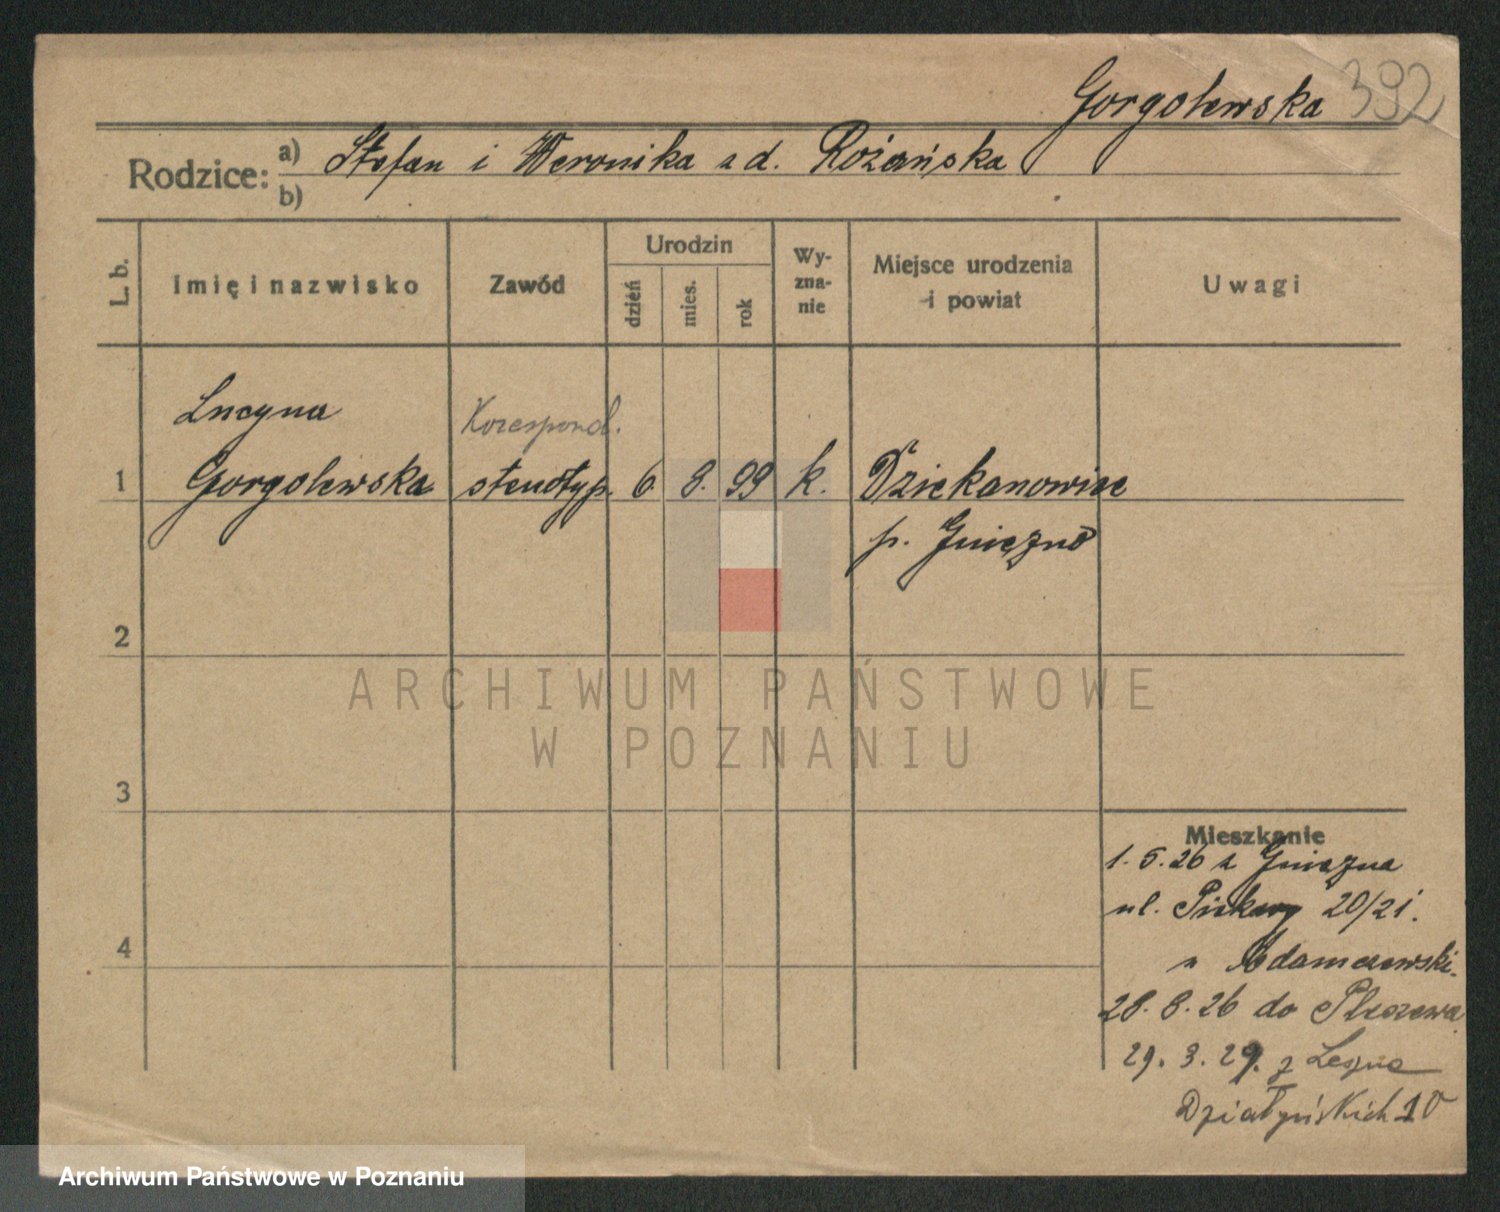 Gorgolewska 392
Rodzice: a) Stefan i Weronika z d. Rożańska
b)
L. b.
Imię i nazwisko
Zawód
Urodzin
dzień
mies.
rok
Wy-
zna-
nie
Miejsce urodzenia
i powiat
Uwagi
Lucyna
Korespond.
1 Gorgolewska stenotyp. 6. 8. 99 k. Dziekanowice
p. Gniezno
2
ARCHIWUM PAŃSTWOWE
W POZNANIU
3
Mieszkanie
1. 5. 26 z Gniezna
ul. Piekary 20/21.
4
u Adamczewski.
28. 8. 26 do Pleszewa
29. 3. 29. z Leszna
Działyńskich 10
Archiwum Państwowe w Poznaniu